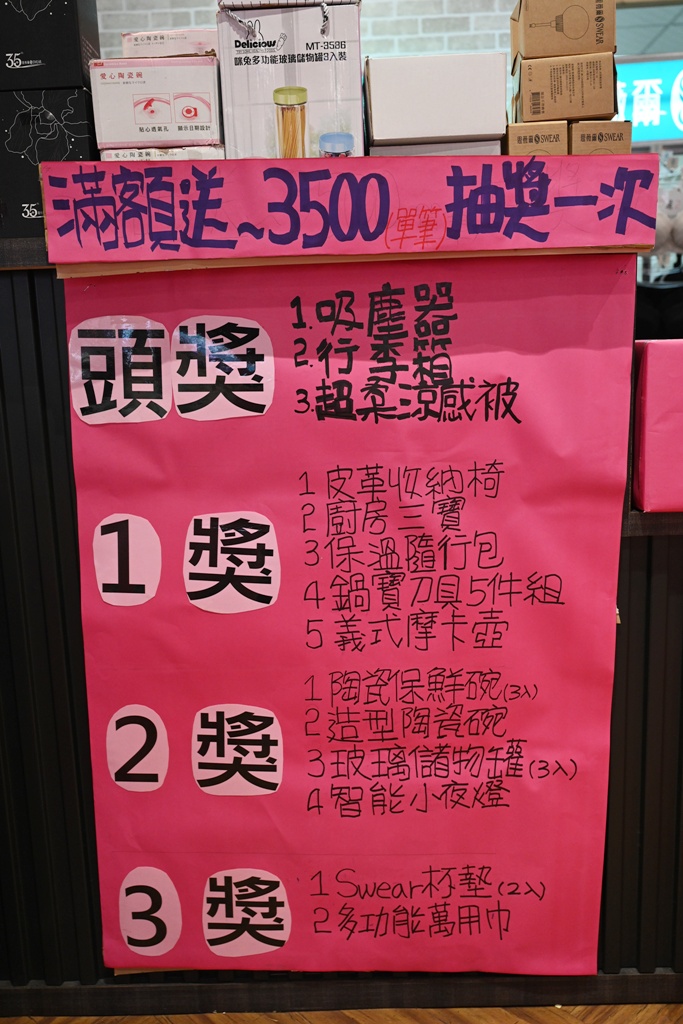 35
愛心陶瓷碗
貼心透氣孔
顯示日期設計
愛心陶瓷碗
Delicious
MT-3586
咪兔多功能玻璃儲物罐3入裝
SWEAR
SWEAR
SWEAR
爾
35
滿額送~3500(單筆)抽獎一次
頭獎
1.吸塵器
2.行李箱
3.超柔涼感被
1獎
1皮革收納椅
2廚房三寶
3保溫隨行包
4鍋寶刀具5件組
5義式摩卡壺
2獎
1陶瓷保鮮碗(3入)
2造型陶瓷碗
3玻璃儲物罐(3入)
4智能小夜燈
3獎
1Swear杯墊(2入)
2多功能萬用巾